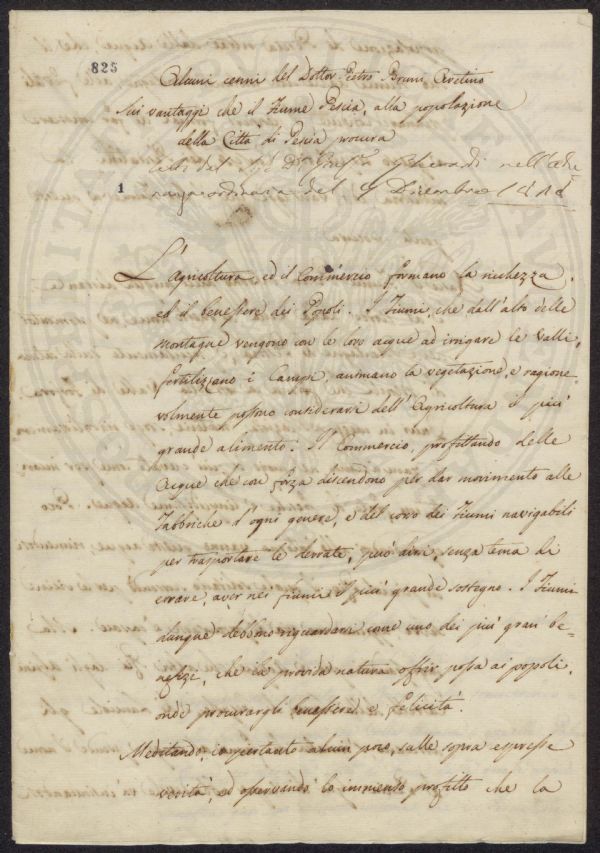 825
Alcuni cenni del Dottor Pietro Bruni Aretino
Sui vantaggi che il Fiume Pescia, alla popolazione
della Città di Pescia procura
Letti dal nell'Adu
1
nanza ordinaria del 9 Dicembre
L'Agricoltura, ed il Commercio formano la ricchezza,
ed il benessere dei Popoli. I Fiumi, che dall'alto delle
montagne vengono con le loro acque ad irrigare le Valli,
fertilizzano i Campi, animano la vegetazione, e ragione
volmente possono considerarsi dell'Agricoltura il più
grande alimento. Il Commercio, profittando delle
Acque che con forza discendono per dar movimento alle
Fabbriche d'ogni genere, e del corso dei Fiumi navigabili
per trasportare le derrate, può dirsi, senza tema di
errare, aver nei fiumi il più grande sostegno. I Fiumi
dunque debbono riguardarsi come uno dei più gran be-
nefizze, che la provida natura offrir possa ai popoli,
onde procurargli benessere e felicità.
Meditando, impertanto alcun poco, sulle sopra espresse
verità, ed osservando lo immenso profitto che la